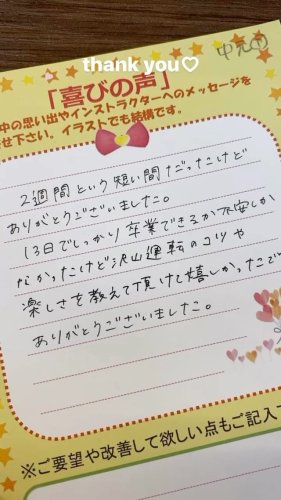 thank you♡
「喜びの声」
中の思い出やインストラクターへのメッセージを
せ下さい。イラストでも結構です。
2週間という短い間だったけど
ありがとうございました。
13日でしっかり卒業できるか不安しか
なかったけど沢山運転のコツや
楽しさを教えて頂けて嬉しかったです
ありがとうございました。
※ご要望や改善して欲しい点もご記入